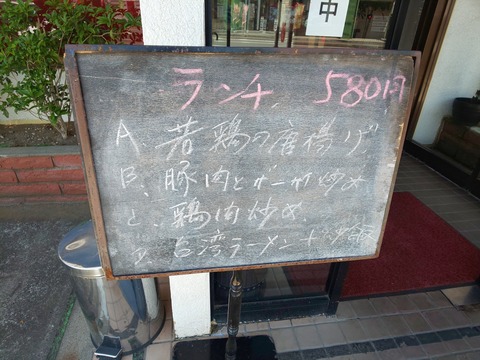 中
ランチ 580円
A、若鶏の唐揚げ
B、豚肉とガーガ炒め
C、鶏肉炒め
台湾ラーメン+炒飯